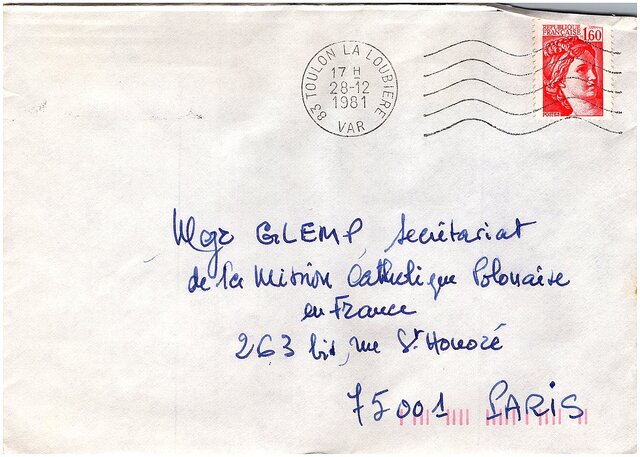 REPUBLIQUE
FRANCAISE 1,60
83 TOULON LA LOUBIERE
17 H
28-12
1981
VAR
POSTES
Mgr GLEMP, Secrétariat
de la Mission Catholique Polonaise
en France
263 bis, rue St Honoré
75001 PARIS